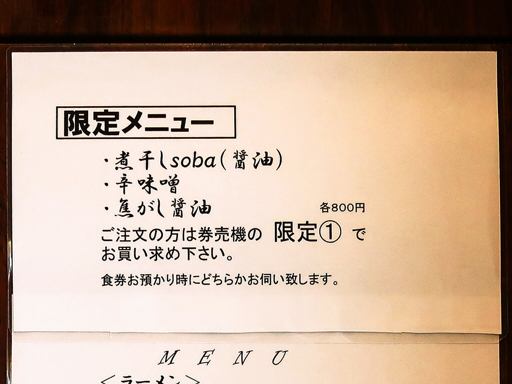 限定メニュー
・煮干しsoba(醤油)
・辛味噌
・焦がし醤油 各800円
ご注文の方は券売機の 限定① で
お買い求め下さい。
食券お預かり時にどちらかお伺い致します。
MENU
<ラーメン>